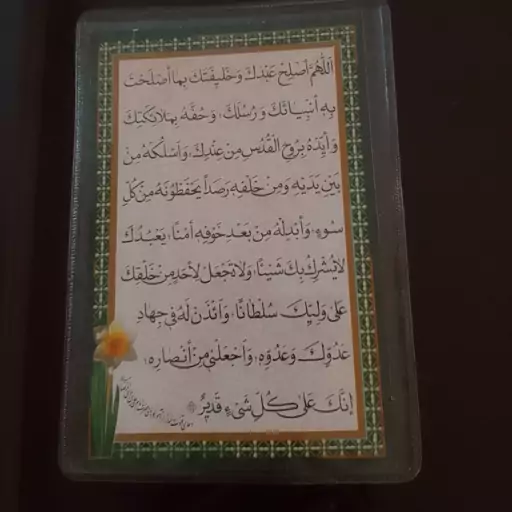 اَللّٰهُمَّ اَصْلِحْ عَبْدَكَ وَ خَلیٖفَتَكَ بِمٰا اَصْلَحْتَ
بِهِ اَنْبِیٰائَكَ وَ رُسُلَكَ، وَ حُفَّهُ بِمَلاٰئِکَتِكَ
وَ اَیِّدْهُ بِرُوحِ الْقُدُسِ مِنْ عِنْدِكَ، وَ اَسْلُکْهُ مِنْ
بَیْنِ یَدَیْهِ وَ مِنْ خَلْفِهِ رَصَداً یَحْفَظُونَهُ مِنْ کُلِّ
سُوءٍ، وَ اَبْدِلْهُ مِنْ بَعْدِ خَوْفِهِ اَمْناً، یَعْبُدُكَ
لاٰ یُشْرِكُ بِكَ شَیْئاً، وَ لاٰ تَجْعَلْ لِاَحَدٍ مِنْ خَلْقِكَ
عَلیٰ وَلِیِّكَ سُلْطٰاناً، وَ ائْذَنْ لَهُ فیٖ جِهٰادِ
عَدُوِّكَ وَ عَدُوِّهِ، وَ اجْعَلْنیٖ مِنْ اَنْصٰارِهِ،
اِنَّكَ عَلیٰ کُلِّ شَیْءٍ قَدیٖرٌ